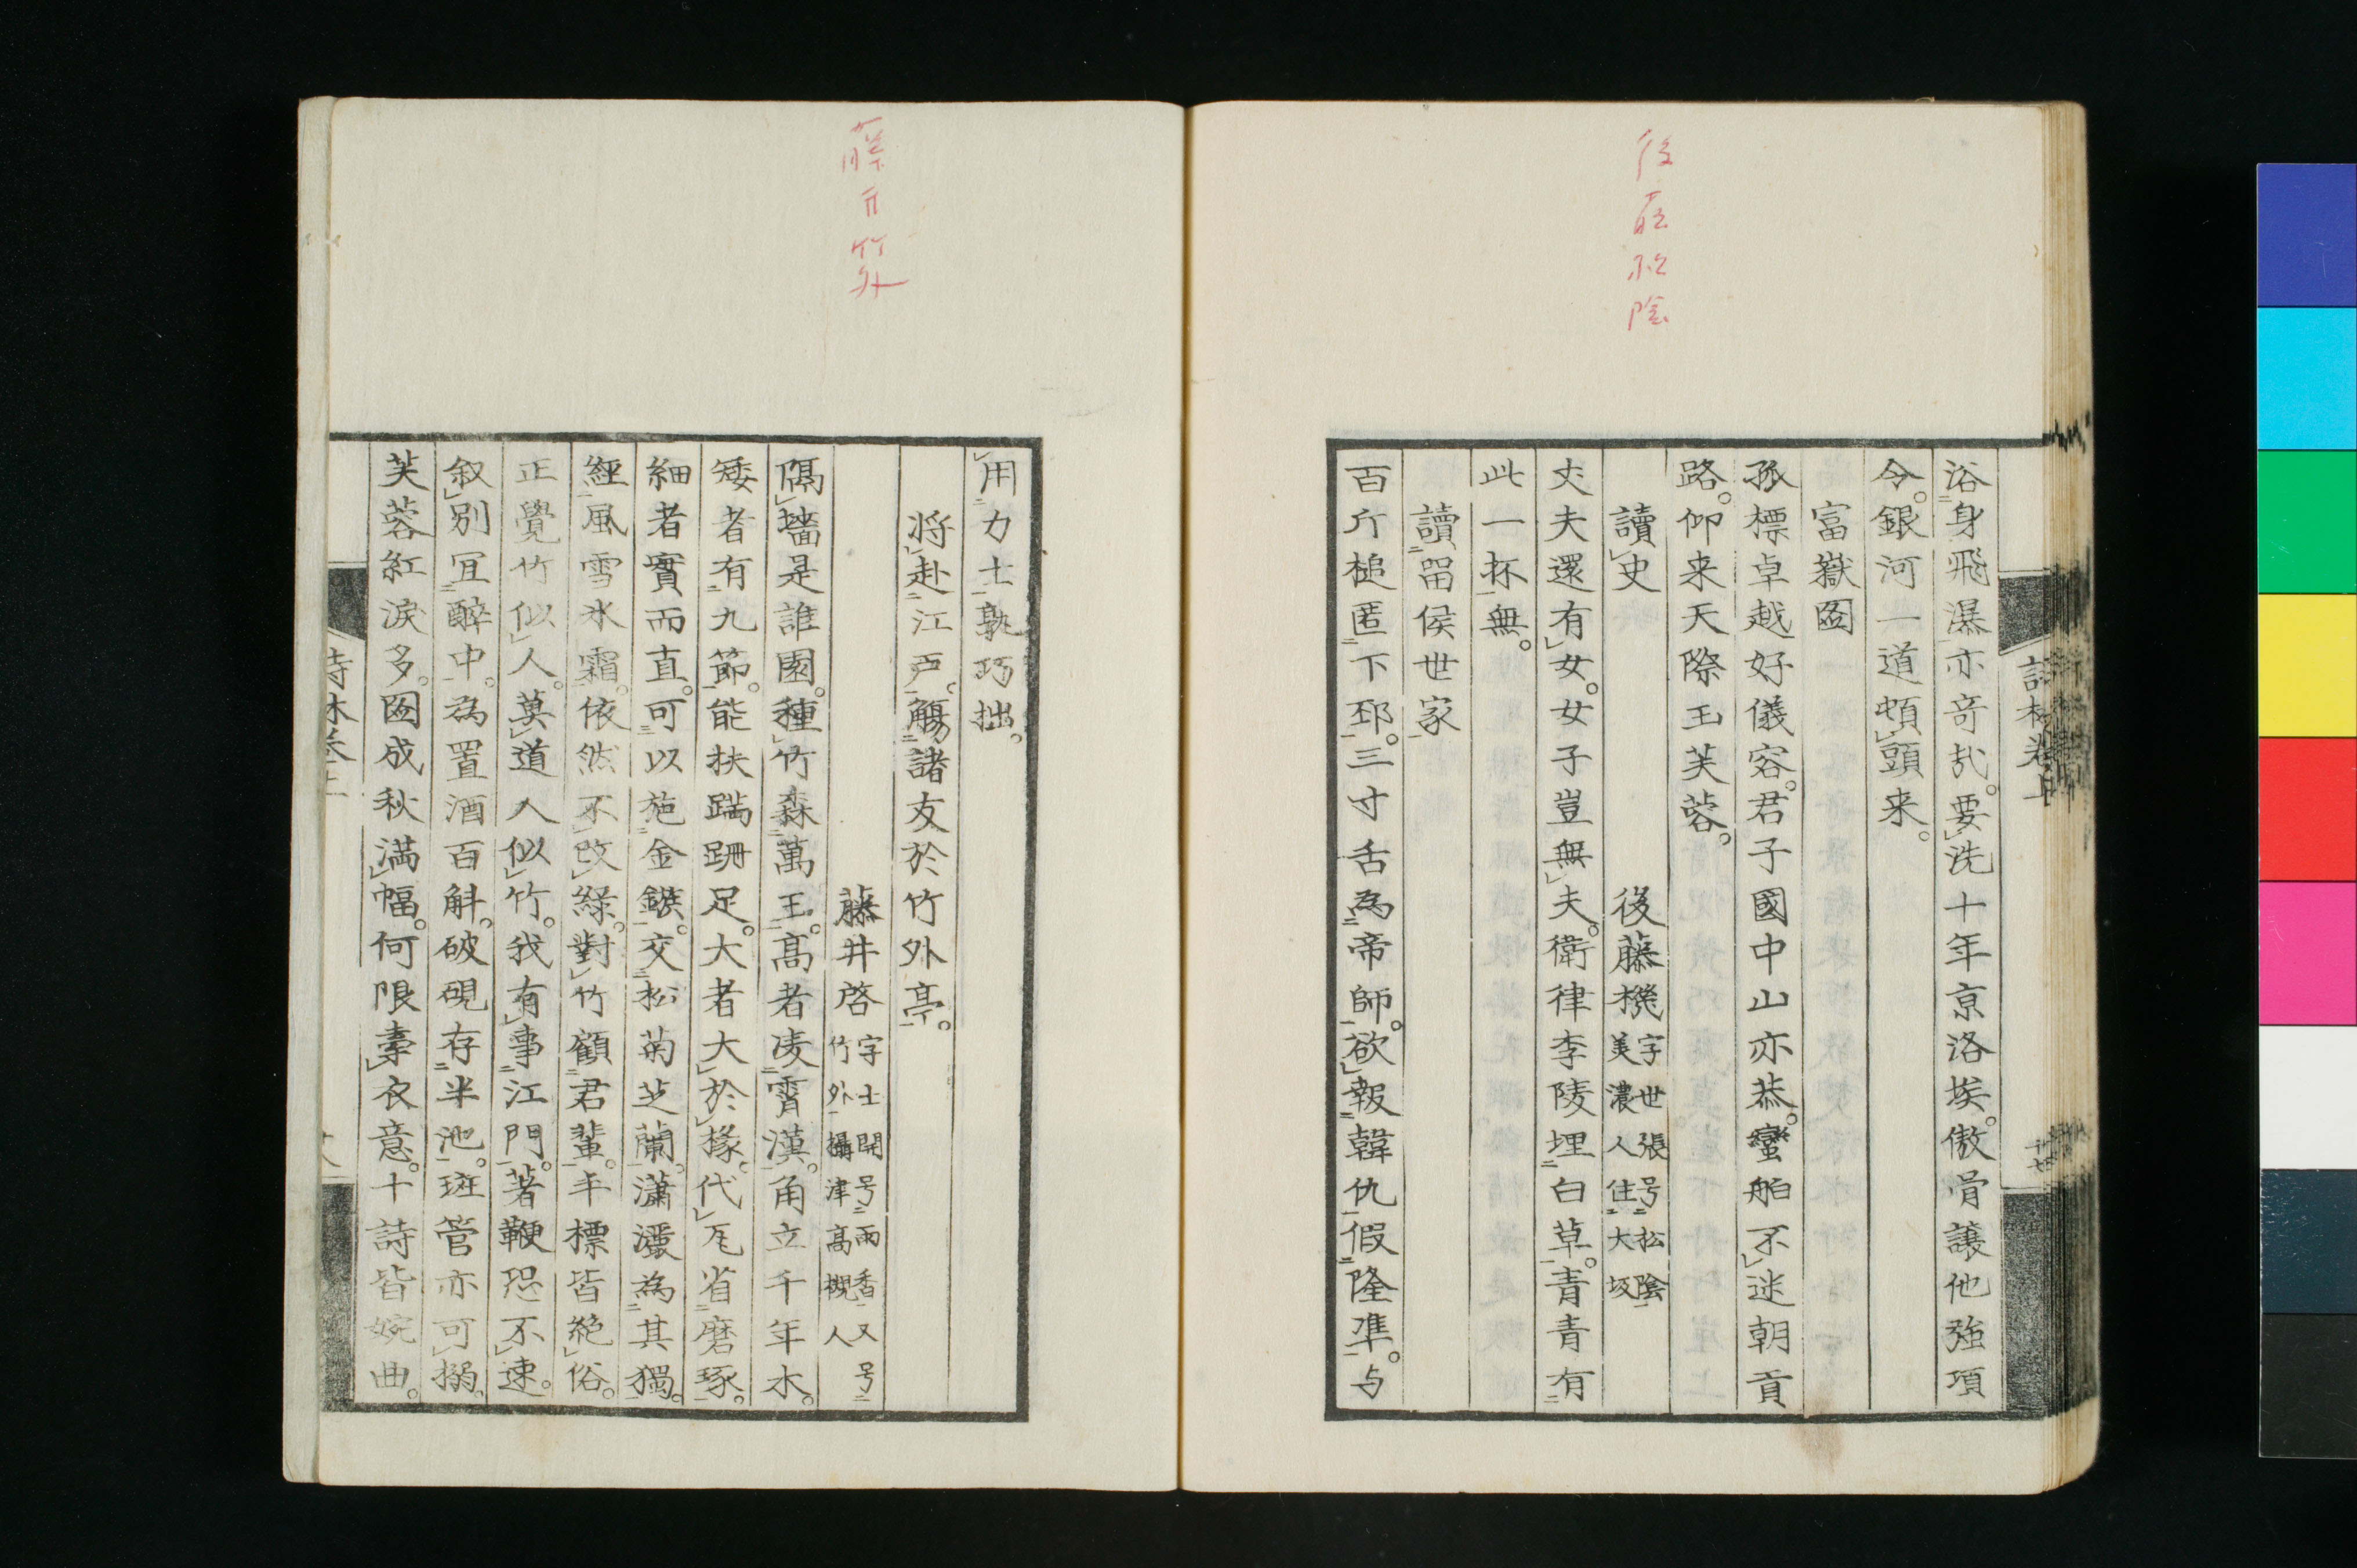 後藤松陰
浴身飛瀑亦奇哉。要洗十年京洛埃。傲骨讓他強項
令。銀河一道頓頭来。
富嶽圖
孤標卓越好儀容。君子國中山亦恭。蠻舶不迷朝貢
路。仰来天際玉芙蓉。
讀史
後藤機 字世張号松陰 美濃人住大坂
丈夫還有女。女子豈無夫。衛律李陵埋白草。青青有
此一抔無。
讀留侯世家
百斤槌匿下邳。三寸舌為帝師。欲報韓仇假隆準。与
詩林巻上
十七
藤井竹外
用力士孰巧拙。
将赴江戸。觴諸友於竹外亭。
藤井啓 字士開号雨香又号竹外攝津高槻人
隔墻是誰園。種竹森萬玉。高者凌霄漢。角立千年木。
矮者有九節。能扶蹣跚足。大者大於椽。代瓦省磨琢。
細者實而直。可以施金鏃。交松菊芝蘭。瀟灑為其獨。
經風雪氷霜。依然不改緑。對竹顧君輩。手標皆絶俗。
正覺竹似人。莫道人似竹。我有事江門。著鞭恐不速。
叙別宜醉中。為置酒百斛。破硯存半池。斑管亦可搦。
芙蓉紅涙多。圖成秋満幅。何限＿衣意。十詩皆婉曲。
詩林巻上